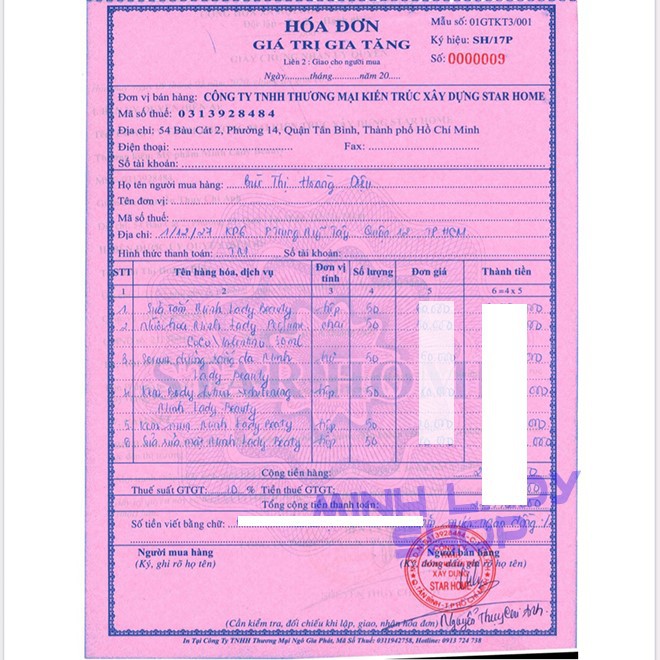 HÓA ĐƠN
GIÁ TRỊ GIA TĂNG
Liên 2 : Giao cho người mua
Ngày..........tháng..........năm 20.....
Mẫu số: 01GTKT3/001
Ký hiệu: SH/17P
Số: 0000009
Đơn vị bán hàng: CÔNG TY TNHH THƯƠNG MẠI KIẾN TRÚC XÂY DỰNG STAR HOME
Mã số thuế: 0313928484
Địa chỉ: 54 Bàu Cát 2, Phường 14, Quận Tân Bình, Thành phố Hồ Chí Minh
Điện thoại: Fax:
Số tài khoản:
Họ tên người mua hàng: Bùi Thị Hoàng Diệu
Tên đơn vị:
Mã số thuế:
Địa chỉ: 1/12/27 KP6 P Trung Mỹ Tây Quận 12 TP HCM
Hình thức thanh toán: TM Số tài khoản:
STT Tên hàng hóa, dịch vụ Đơn vị tính Số lượng Đơn giá Thành tiền
1 2 3 4 5 6 = 4 x 5
1. Sữa Minh Lady Beauty hộp 50
2. Nước hoa Minh Lady Perfume chai 50
CoCo Valentino 30ml
3. Serum dưỡng da Minh 50
Lady Beauty
4. Kem Body hộp 50
Minh Lady Beauty
5. Kem Minh Lady Beauty hộp 50
6. Sữa rửa mặt Minh Lady Beaty hộp 50
Cộng tiền hàng:
Thuế suất GTGT: 10 % Tiền thuế GTGT:
Tổng cộng tiền thanh toán:
MINH LADY
SHOP
Số tiền viết bằng chữ: đồng
Người mua hàng Người bán hàng
(Ký, ghi rõ họ tên) (Ký, đóng dấu, ghi rõ họ tên)
XÂY DỰNG
STAR HOME
Nguyễn Thụy Anh
(Cần kiểm tra, đối chiếu khi lập, giao, nhận hóa đơn)
In Tại Công Ty TNHH Thương Mại Ngô Gia Phát, Mã Số Thuế: 0311942758, Hotline: 0913 724 738
STAR HOME